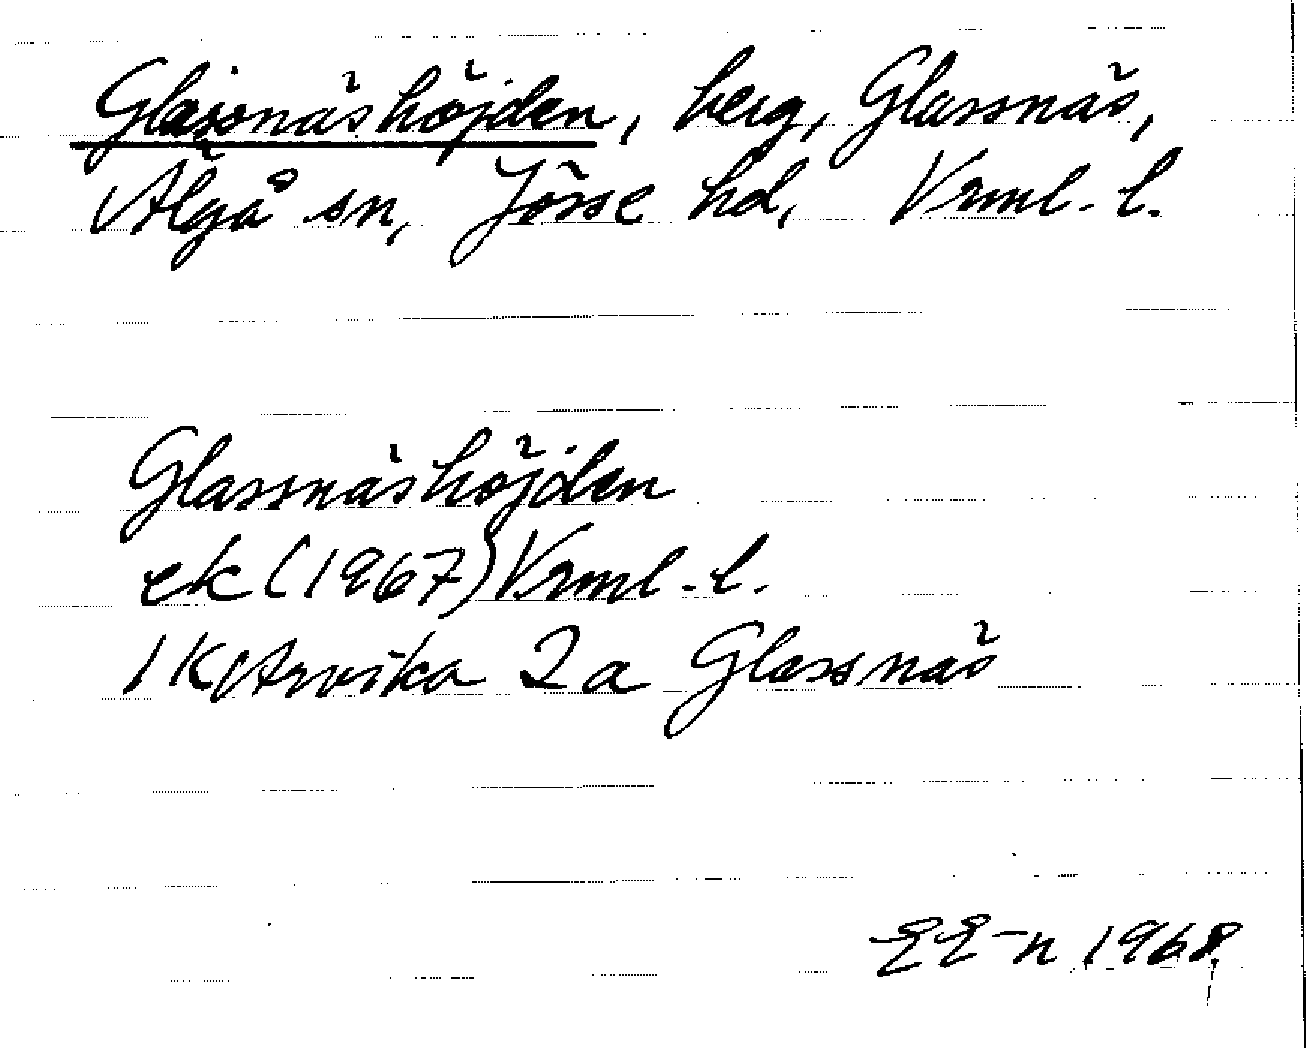 Glassnäshöjden, berg, Glassnäs,
Älgå sn, Jösse hd, Vrml. l.
Glassnäshöjden
ek (1967) Vrml. l.
1 K Arvika 2a Glassnäs
EE-n 1968.